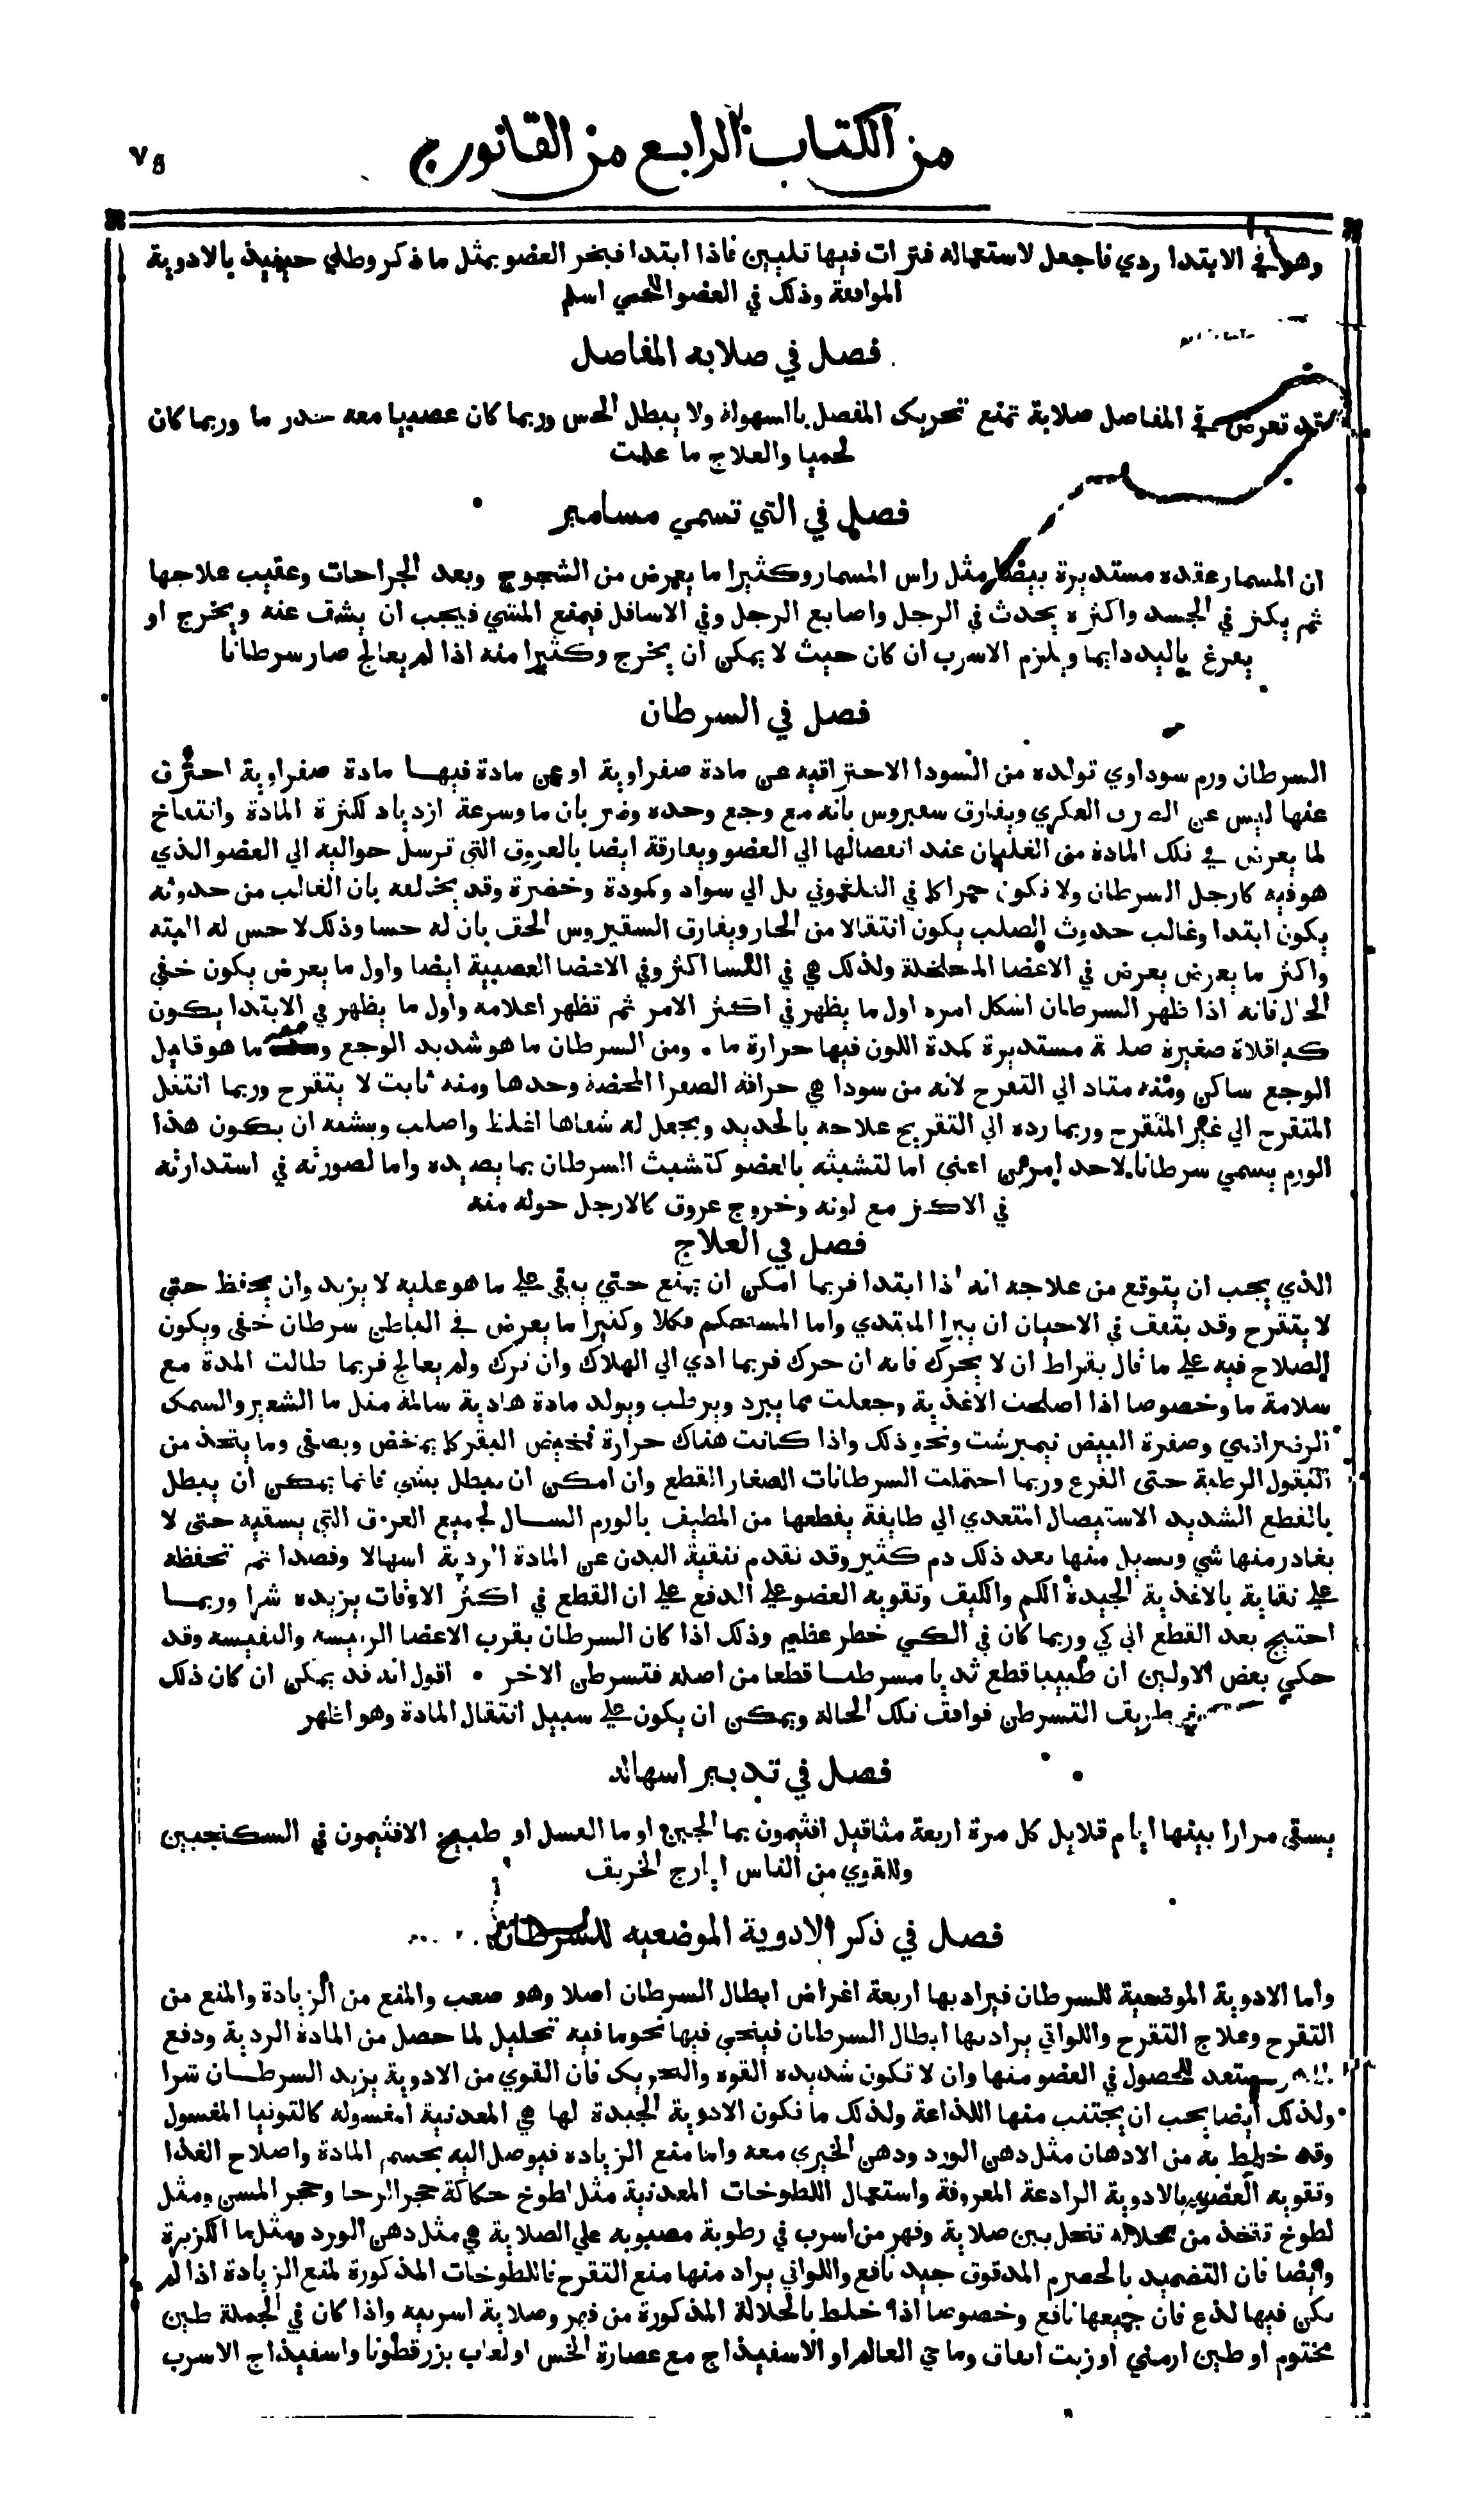 من الكتاب الرابع من القانون
٧٥
وهو في الابتدا ردي فاجعل لاستعماله فترات فيها تليين فاذا ابتدا فبخر العضو بمثل ما ذكر وطلي حينيذ بالادوية
الموافقة وذلك في العضو اللحمي اسلم
فصل في صلابه المفاصل
قد تعرض في المفاصل صلابة تمنع تحريك المفصل بالسهولة ولا يبطل الحس وربما كان عصبيا معه خدر ما وربما كان
لحميا والعلاج ما علمت
فصل في التي تسمي مسامير
ان المسمار عقده مستديرة بيضا مثل راس المسمار وكثيرا ما يعرض من الشجوج وبعد الجراحات وعقيب علاجها
ثم يكثر في الجسد واكثره يحدث في الرجل واصابع الرجل وفي الاسافل فيمنع المشي فيجب ان يشق عنه ويخرج او
يفرغ باليد دايما ويلزم الاسرب ان كان حيث لا يمكن ان يخرج وكثيرا منه اذا لم يعالج صار سرطانا
فصل في السرطان
السرطان ورم سوداوي تولده من السودا الاحتراقيه عن مادة صفراوية او عن مادة فيها مادة صفراوية احترق
عنها ليس عن الصرف العكري ويفارق سقيروس بانه مع وجع وحده وضربان ما وسرعة ازدياد لكثرة المادة وانتفاخ
لما يعرض في تلك المادة من الغليان عند انفصالها الي العضو ويفارقة ايضا بالعروق التي ترسل حواليه الي العضو الذي
هو فيه كارجل السرطان ولا تكون حمرا كما في الفلغموني بل الي سواد وكمودة وخضرة وقد يخالفه بان الغالب من حدوثه
يكون ابتدا وغالب حدوث الصلب يكون انتقالا من الحار ويفارق السقيروس الحق بان له حسا وذلك لا حس له البته
واكثر ما يعرض يعرض في الاعضا المخلخلة ولذلك هي في النسا اكثر وفي الاعضا العصبية ايضا واول ما يعرض يكون خفي
الحال فانه اذا ظهر السرطان اشكل امره اول ما يظهر في اكثر الامر ثم تظهر اعلامه واول ما يظهر في الابتدا يكون
كباقلاة صغيرة صلبة مستديرة كمدة اللون فيها حرارة ما ۰ ومن السرطان ما هو شديد الوجع ومنه ما هو قليل
الوجع ساكن ومنه متاد الي التقرح لانه من سودا هي حراقه الصفرا المحضة وحدها ومنه ثابت لا يتقرح وربما انتقل
المتقرح الي غير المتقرح وربما رده الي التقريح علاجه بالحديد ويجعل له شفاها اغلظ واصلب ويشبه ان يكون هذا
الورم يسمي سرطانا لاحد امرين اعني اما لتشبثه بالعضو كتشبث السرطان بما يصيده واما لصورته في استدارته
في الاكثر مع لونه وخروج عروق كالارجل حوله منه
فصل في العلاج
الذي يجب ان يتوقع من علاجه انه اذا ابتدا فربما امكن ان يمنع حتي يبقي علي ما هو عليه لا يزيد وان يحفظ حتي
لا يتقرح وقد يتفق في الاحيان ان يبرا المبتدي واما المستحكم فكلا وكثيرا ما يعرض في الباطن سرطان خفي ويكون
الصلاح فيه علي ما قال بقراط ان لا يحرك فانه ان حرك فربما ادي الي الهلاك وان ترك ولم يعالج فربما طالت المدة مع
سلامة ما وخصوصا اذا اصلحت الاغذية وجعلت مما يبرد ويرطب ويولد مادة هادية سالمة مثل ما الشعير والسمك
الرضراضي وصفرة البيض نيمبرشت ونحو ذلك واذا كانت هناك حرارة فمخيض البقر كما يمخض ويصفي وما يتخذ من
البقول الرطبة حتي القرع وربما احتملت السرطانات الصغار القطع وان امكن ان يبطل بشي فانما يمكن ان يبطل
بالقطع الشديد الاستيصال المتعدي الي طايفة يقطعها من المطيف بالورم السال لجميع العروق التي يسقيه حتي لا
يغادر منها شي ويسيل منها بعد ذلك دم كثير وقد تقدم تنقية البدن عن المادة الردية اسهالا وفصدا ثم تحفظه
علي نقاية بالاغذية الجيدة الكم والكيف وتقويه العضو علي الدفع علي ان القطع في اكثر الاوقات يزيده شرا وربما
احتيج بعد القطع الي كي وربما كان في الكي خطر عظيم وذلك اذا كان السرطان بقرب الاعضا الرييسه والنفيسه وقد
حكي بعض الاولين ان طبيبا قطع ثديا مسرطنا قطعا من اصله فتسرطن الاخر ۰ اقول انه قد يمكن ان كان ذلك
طريق التسرطن فوافق تلك الحالة ويمكن ان يكون علي سبيل انتقال المادة وهو اظهر
فصل في تدبير اسهاله
يسقي مرارا بينها ايام قلايل كل مرة اربعة مثاقيل افثيمون بما الجبن او ما العسل او طبيخ الافثيمون في السكنجبين
وللقوي من الناس ايارج الخربق
فصل في ذكر الادوية الموضعيه للسرطان
واما الادوية الموضعية للسرطان فيراد بها اربعة اغراض ابطال السرطان اصلا وهو صعب والمنع من الزيادة والمنع من
التقرح وعلاج التقرح واللواتي يراد بها ابطال السرطان فينحي فيها نحو ما فيه تحليل لما حصل من المادة الردية ودفع
مستعد للحصول في العضو منها وان لا تكون شديده القوه والتحريك فان القوي من الادوية يزيد السرطان شرا
ولذلك ايضا يجب ان يجتنب منها اللذاعة ولذلك ما تكون الادوية الجيدة لها هي المعدنية المغسوله كالتوتيا المغسول
وقد خلط به من الادهان مثل دهن الورد ودهن الخيري معه واما منع الزياده فيوصل اليه بحسم المادة واصلاح الغذا
وتقويه العضو بالادوية الرادعة المعروفة واستعمال اللطوخات المعدنية مثل لطوخ حكاكة حجر الرحا وحجر المسن ومثل
لطوخ تتخذ من محلاله تنحل بين صلاية وفهر من اسرب في رطوبة مصبوبه علي الصلاية هي مثل دهن الورد ومثل ما الكزبرة
وايضا فان التضميد بالحصرم المدقوق جيد نافع واللواتي يراد منها منع التقرح فاللطوخات المذكورة لمنع الزيادة اذا لم
يكن فيها لذع فان جميعها نافع وخصوصا اذا خلط بالحلالة المذكورة من فهر وصلاية اسربيه واذا كان في الجملة طين
مختوم او طين ارمني او زيت انفاق وما حي العالم او الاسفيذاج مع عصارة الخس او لعاب بزرقطونا واسفيذاج الاسرب